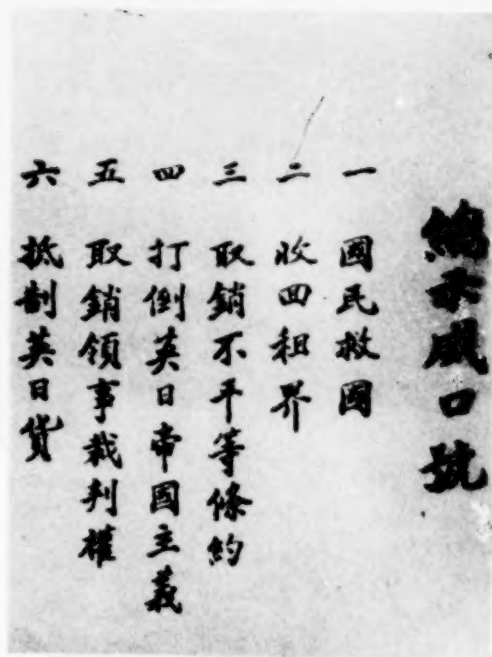 總示威口號
一 國民救國
二 收回租界
三 取銷不平等條約
四 打倒英日帝國主義
五 取銷領事裁判權
六 抵制英日貨